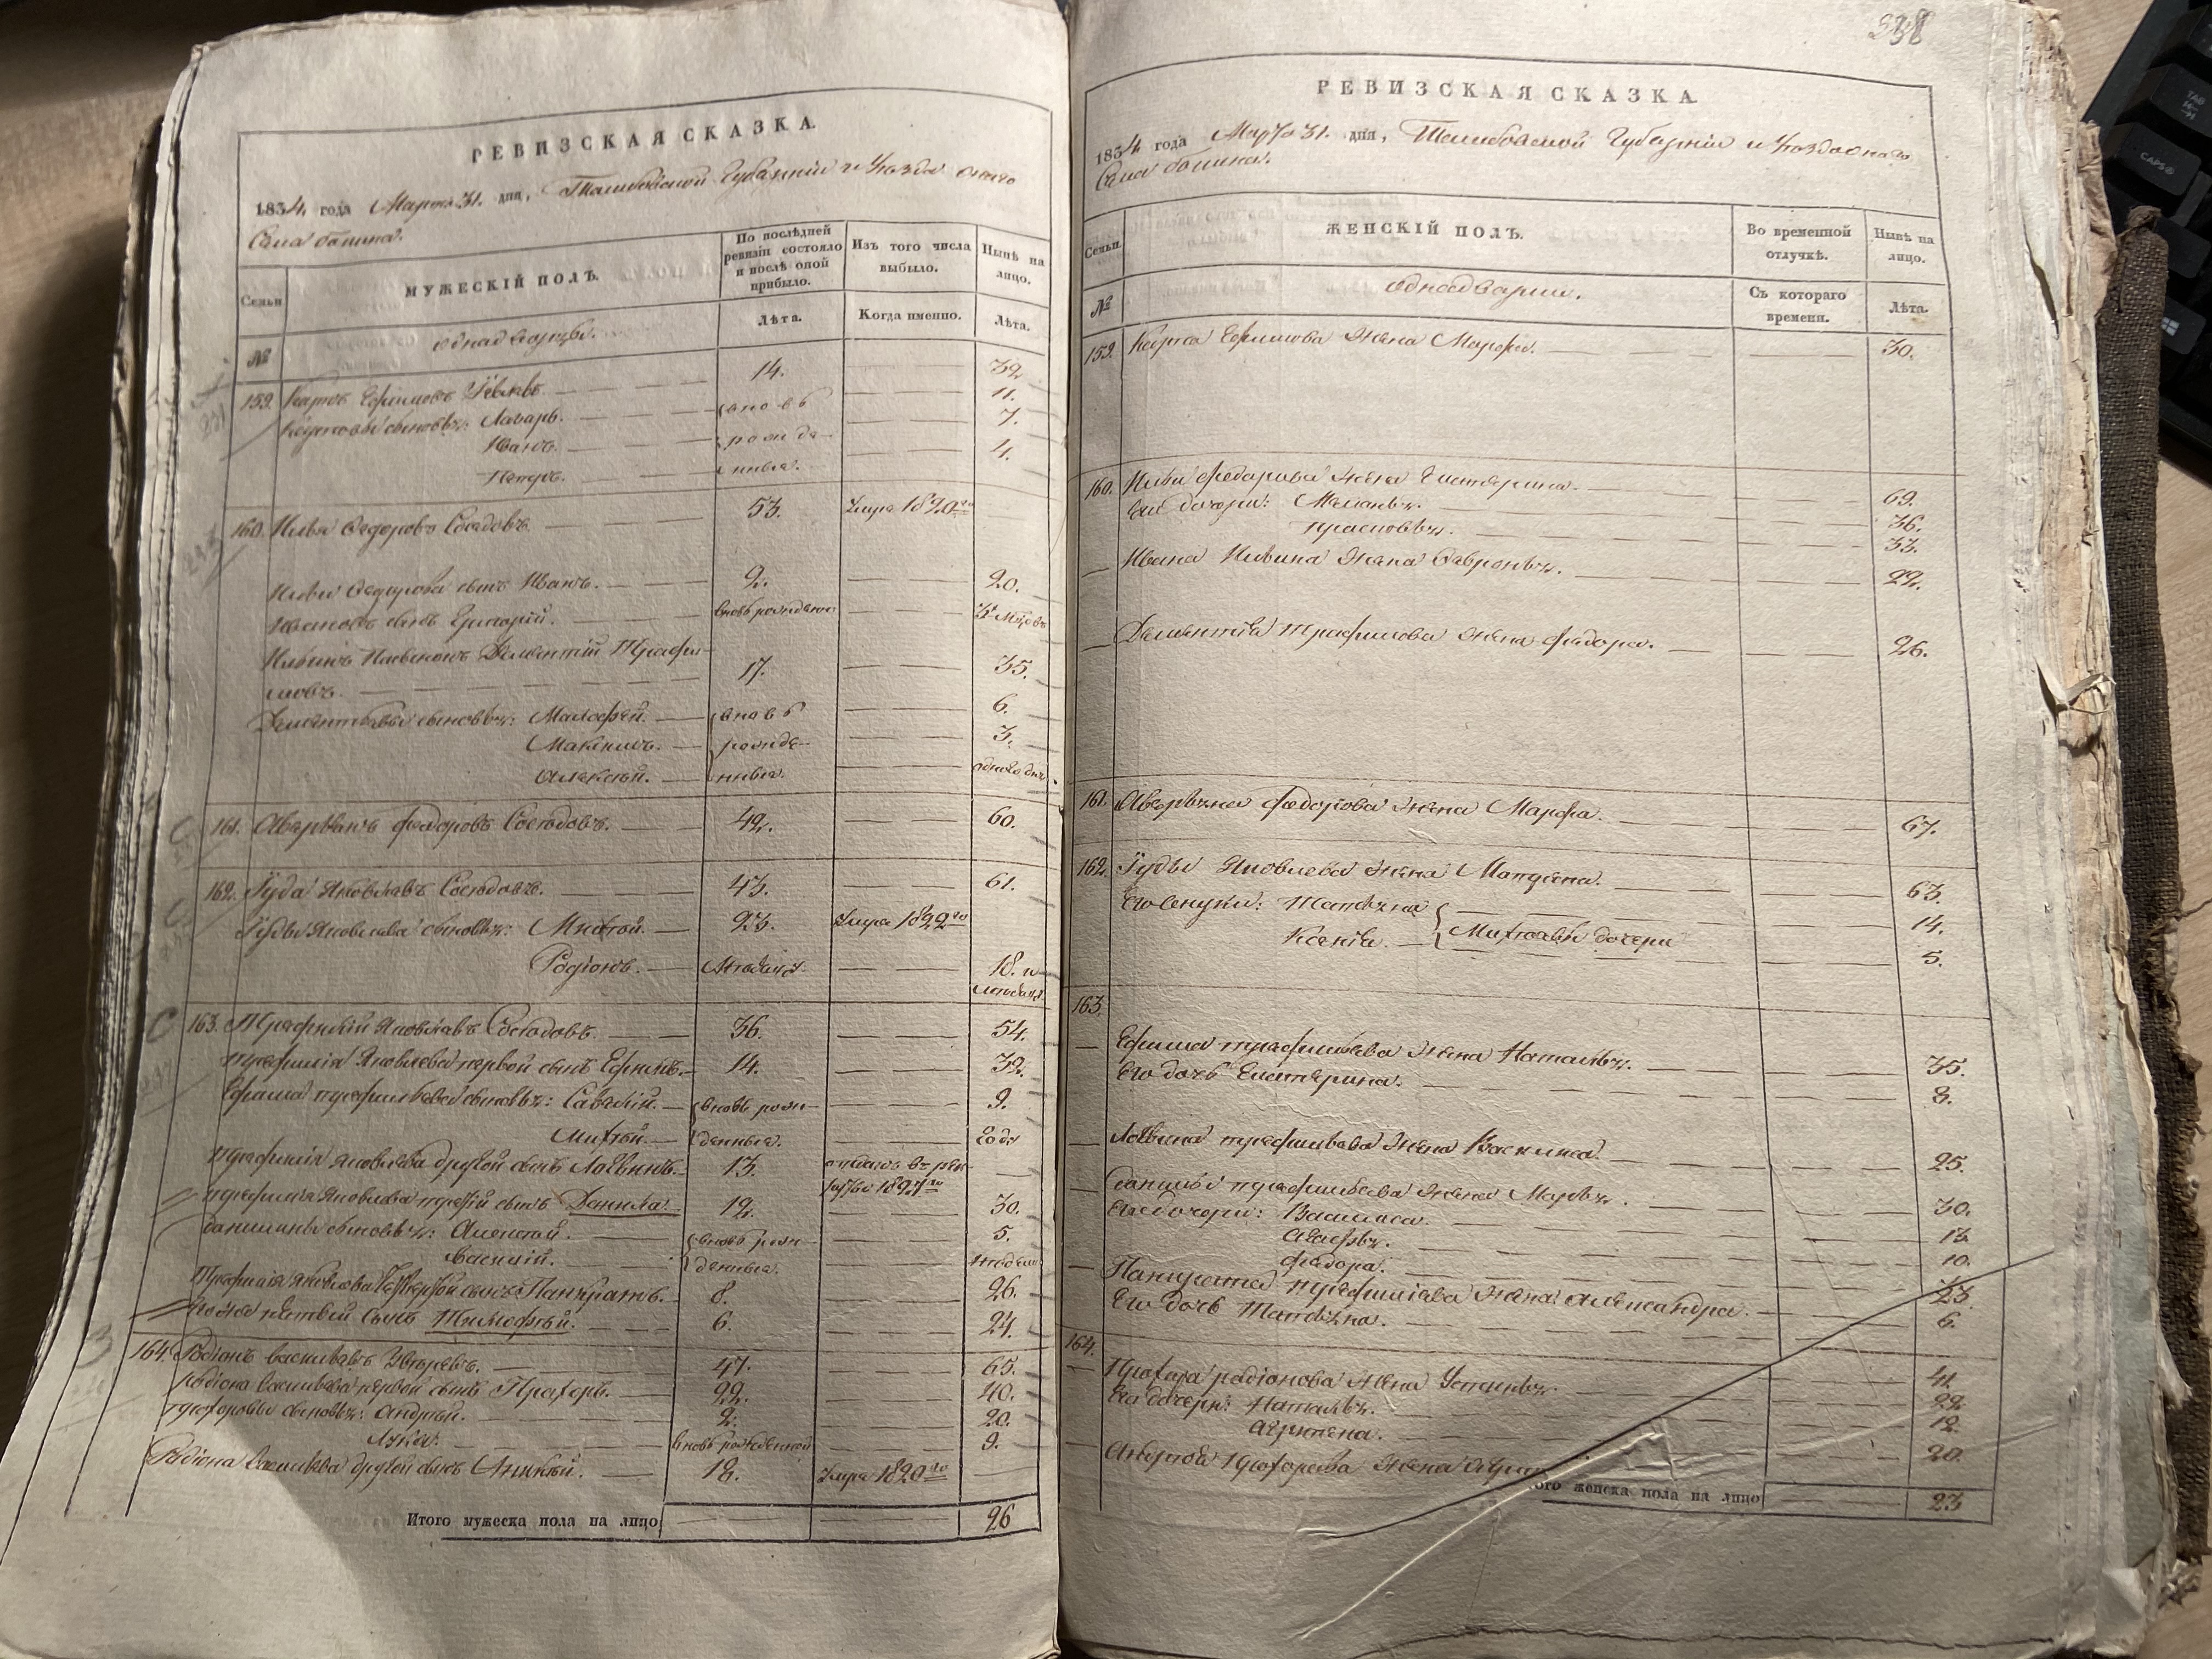 РЕВИЗСКАЯ СКАЗКА.
1834. года Марта 31. дня, Тамбовской Губернiи и Уезда
Села
Семьи
МУЖЕСКІЙ ПОЛЪ.
По послѣдней ревизіи состояло и послѣ оной прибыло.
Изъ того числа выбыло.
Нынѣ на лицо.
№
однадворцы.
Лѣта.
Когда именно.
Лѣта.
159. Карпъ Ефимовъ 14. 32
Карповы сыновья: Лазарь. вновь 11.
Иванъ. рожде- 7.
Петръ. нныя. 4.
160. Илья Федоровъ Соседовъ. 53. умре 1820го
Ильи Федорова сынъ Иванъ. 2. 20.
Ивановъ сынъ Григорий. вновь рожденно 3 м
Ильинъ Племенникъ Дементий Трофи-
мовъ. 17. 35.
Дементьевы сыновья: Малофей. вновь 6.
Макимъ. рожде- 3.
Алексей. нныя.
161. Аверьянъ Федоровъ Соседовъ. 42. 60.
162. Іуда Яковлевъ Соседовъ. 43. 61.
Іуды Яковлева сыновья: Михей. 23. умре 1822го
Родіонъ. 18. и
163. Трофимій Яковлевъ Соседовъ. 36. 54.
Трофимія Яковлева первой сынъ Ефимъ. 14. 32.
Ефима Трофимьева сыновья: Савелій. вновь рож- 9.
Михей. денныя. годъ
Трофимія Яковлева другой сынъ Логвинъ. 13. отданъ в рек-
руты 1827го
Трофимія Яковлева третій сынъ Данила. 12. 30.
Данилины сыновья: Алексей. вновь рож- 5.
Василий. денныя.
Трофимія Яковлева четвертой сынъ Панкратъ. 8. 26.
Его же пятый сынъ Тимофей. 6. 24.
164. Родіонъ Васильевъ 47. 65.
Родіона Васильева первой сынъ Прохоръ. 22. 40.
Прохоровы сыновья: Андрей. 2. 20.
Лука. вновь рожденной 9.
Родіона Васильева другой сынъ Аникей. 12. умре 1820го
Итого мужеска пола на лицо 26
238
РЕВИЗСКАЯ СКАЗКА.
1834 года Марта 31. дня, Тамбовской Губернiи и Уезда
Села
Семьи.
ЖЕНСКІЙ ПОЛЪ.
Во временной отлучкѣ.
Нынѣ на лицо.
№
однодворки.
Съ котораго времени.
Лѣта.
159. Карпа Ефимова жена Марфа. 30.
160. Ильи Федорова жена Екатерина. 69.
Его дочери: Меланья. 36.
Прасковья. 33.
Ивана Ильина жена Февронья. 22.
Дементия Трофимова жена Федора. 26.
161. Аверьяна Федорова жена Марфа. 67.
162. Іуды Яковлева жена Матрена. 63.
Его внуки: Татьяна 14.
Ксения. Михеевы дочери 5.
163.
Ефима Трофимьева жена Наталья. 35.
Его дочь Екатерина. 8.
Логвина Трофимьева жена Васкина. 25.
Данилы Трофимьева жена Марья. 30.
Его дочери: Василиса. 13
Агафья. 10.
Федора.
Панкрата Трофимиева жена Александра. 23.
Его дочь Татьяна. 6.
164.
Прохора Родіонова жена Устинья. 41
Его дочери: Наталья. 22
Агрипена. 12.
Андрея Прохорова жена 20.
ого женска пола на лицо 23
TAB
CAPS